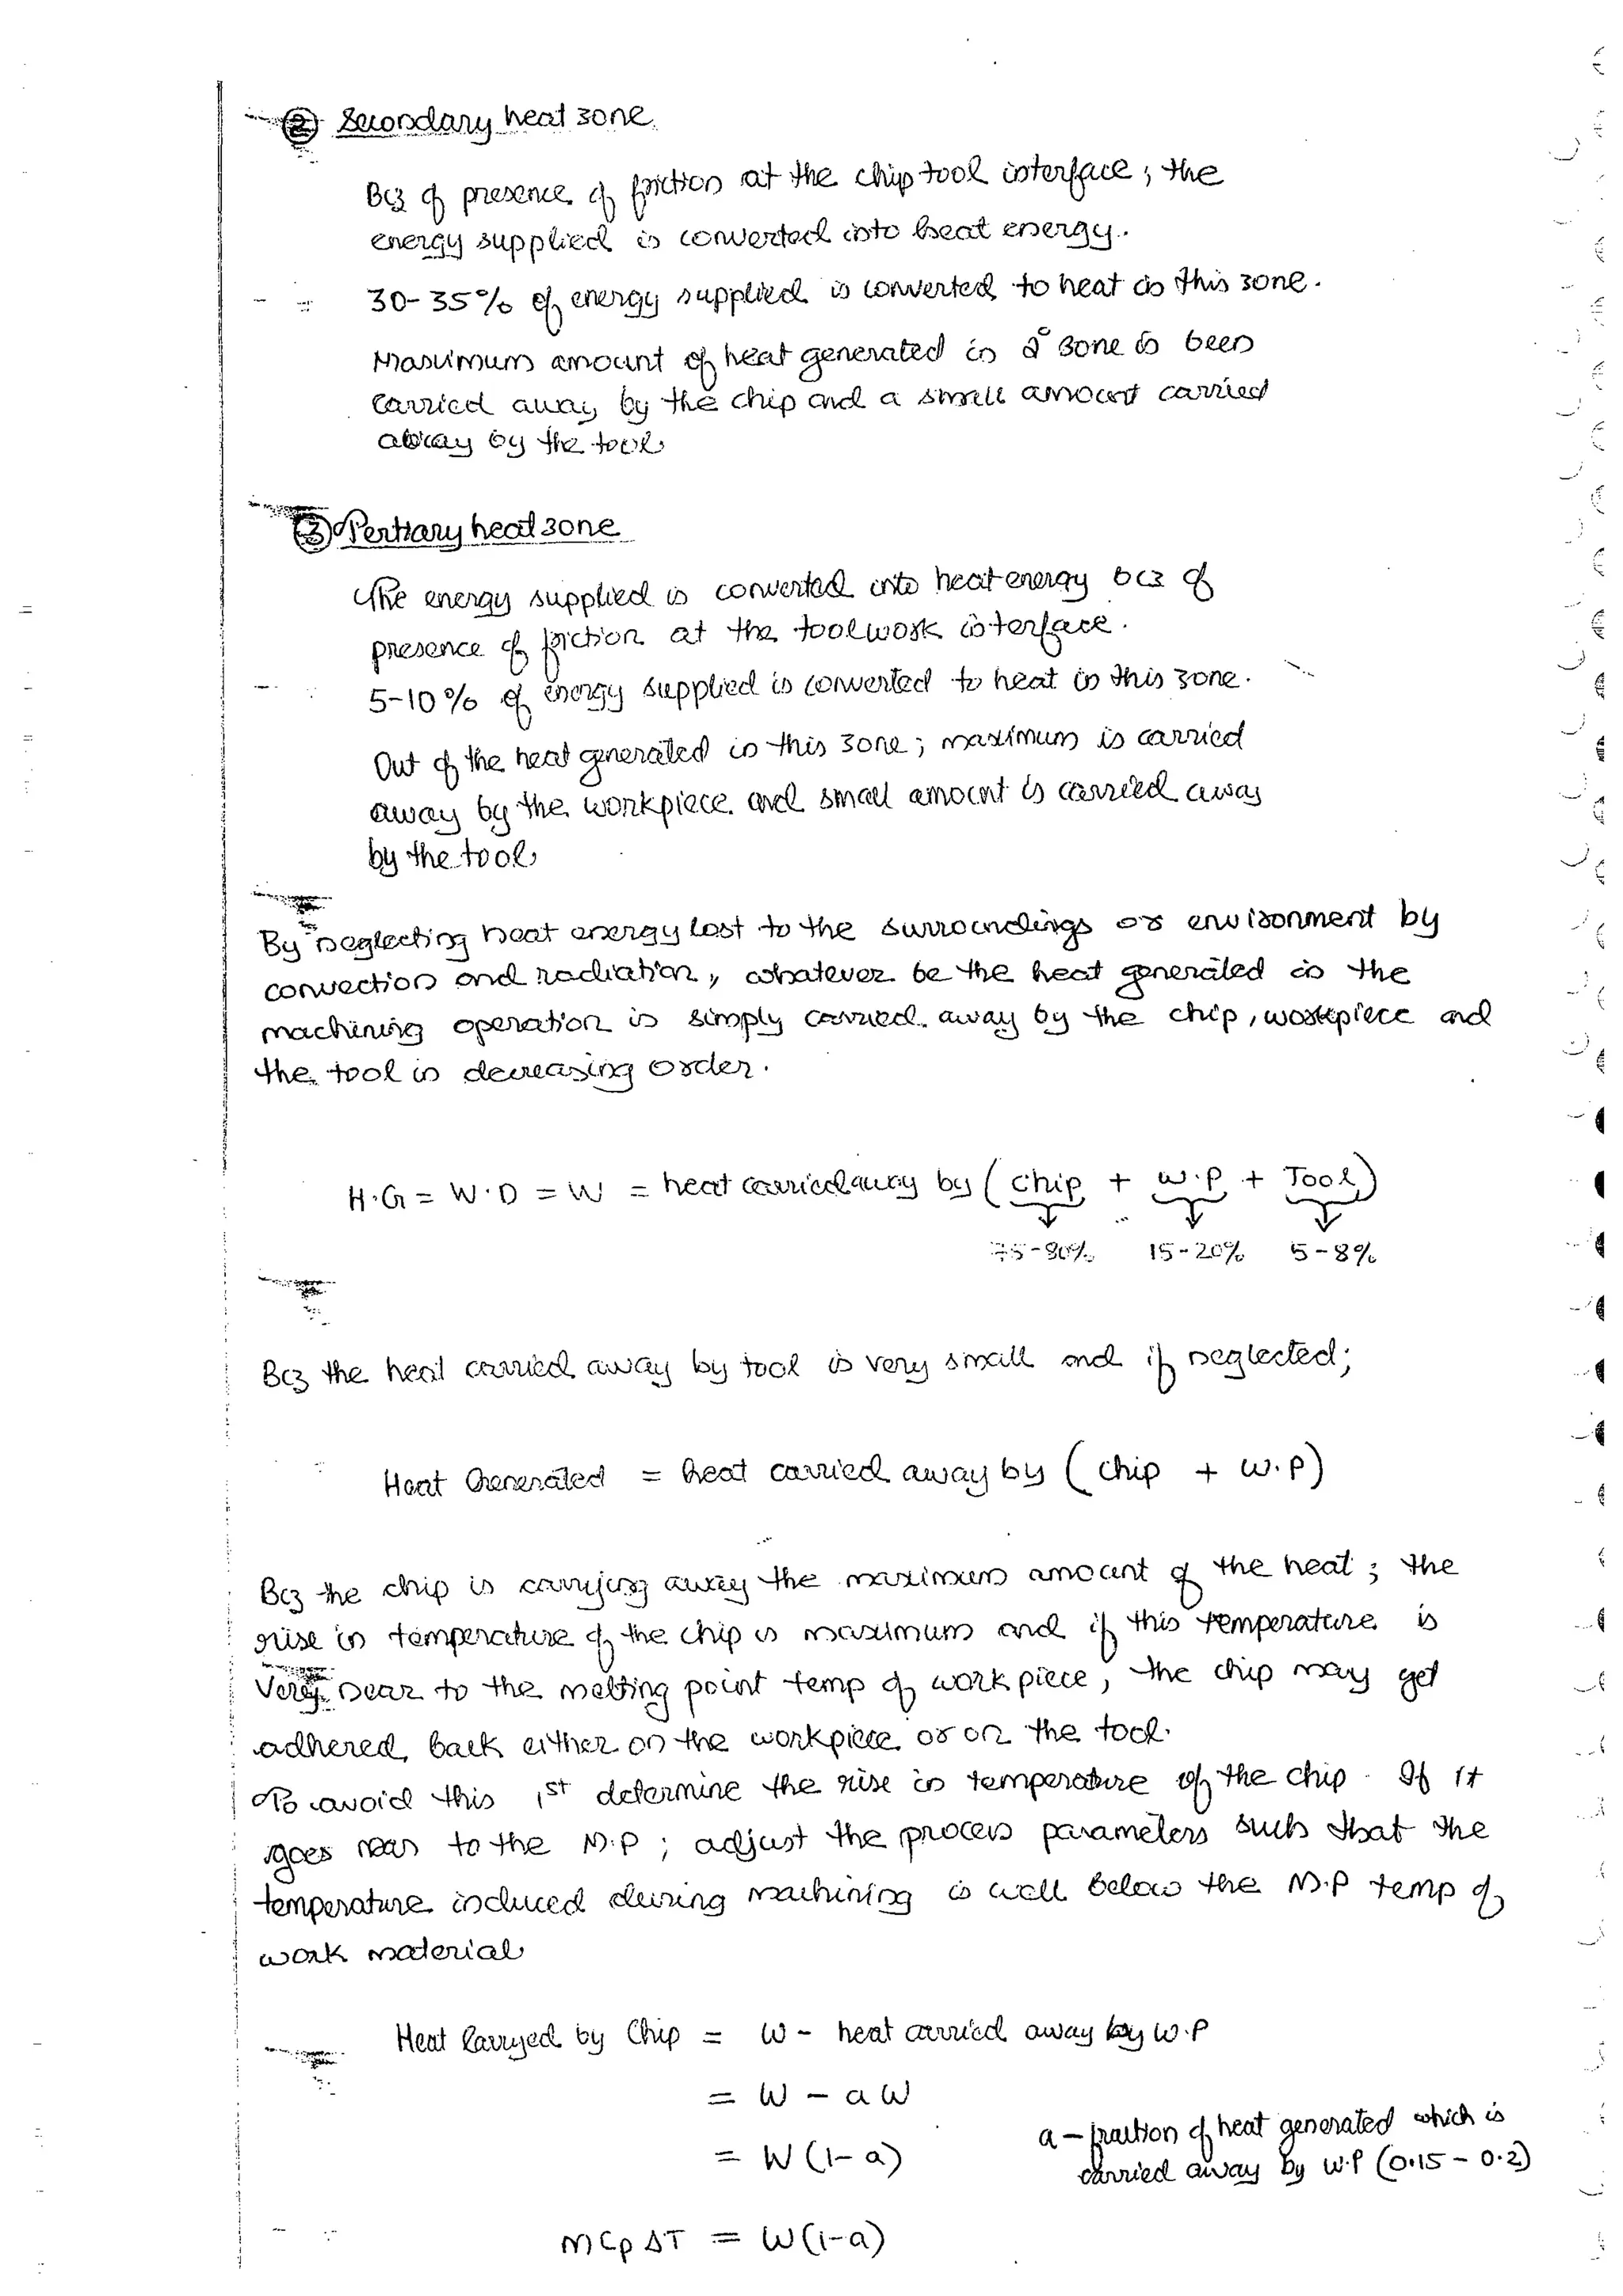 ② Secondary heat zone.
Bcz of presence of friction at the chip tool interface; the
energy supplied is converted into heat energy.
30-35% of energy supplied is converted to heat in this zone.
Maximum amount of heat generated in 2° zone is been
carried away by the chip and a small amount carried
away by the tool
③ Tertiary heat zone
The energy supplied is converted into heat energy bcz of
presence of friction at the tool work interface.
5-10% of energy supplied is converted to heat in this zone.
Out of the heat generated in this zone; maximum is carried
away by the workpiece and small amount is carried away
by the tool
By neglecting heat energy lost to the surroundings or environment by
convection and radiation, whatever be the heat generated in the
machining operation is simply carried away by the chip, workpiece and
the tool in decreasing order.
H.G = W.D = W = heat carried away by (chip + W.P + Tool)
75-80% 15-20% 5-8%
Bcz the heat carried away by tool is very small and if neglected;
Heat Generated = heat carried away by (chip + W.P)
Bcz the chip is carrying away the maximum amount of the heat; the
rise in temperature of the chip is maximum and if this temperature is
very near to the melting point temp of work piece, the chip may get
adhered back either on the workpiece or on the tool.
To avoid this 1st determine the rise in temperature of the chip. If it
goes near to the M.P; adjust the process parameters such that the
temperature induced during machining is well below the M.P temp of
work material
Heat Carryed by Chip = W - heat carried away by W.P
= W - aW
= W(1-a)
a - fraction of heat generated which is
carried away by W.P (0.15 - 0.2)
mCpΔT = W(1-a)